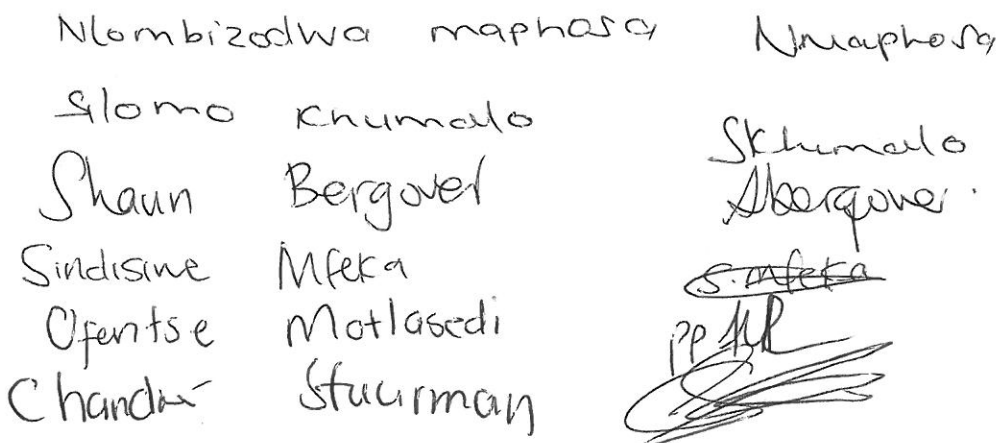 Nlombizodwa maphosa Nmaphosa
Slomo Khumalo SKhumalo
Shaun Bergover Sbergover.
Sindisiwe Mfeka S.mfeka
Ofentse Motlasedi pp
Stuurman